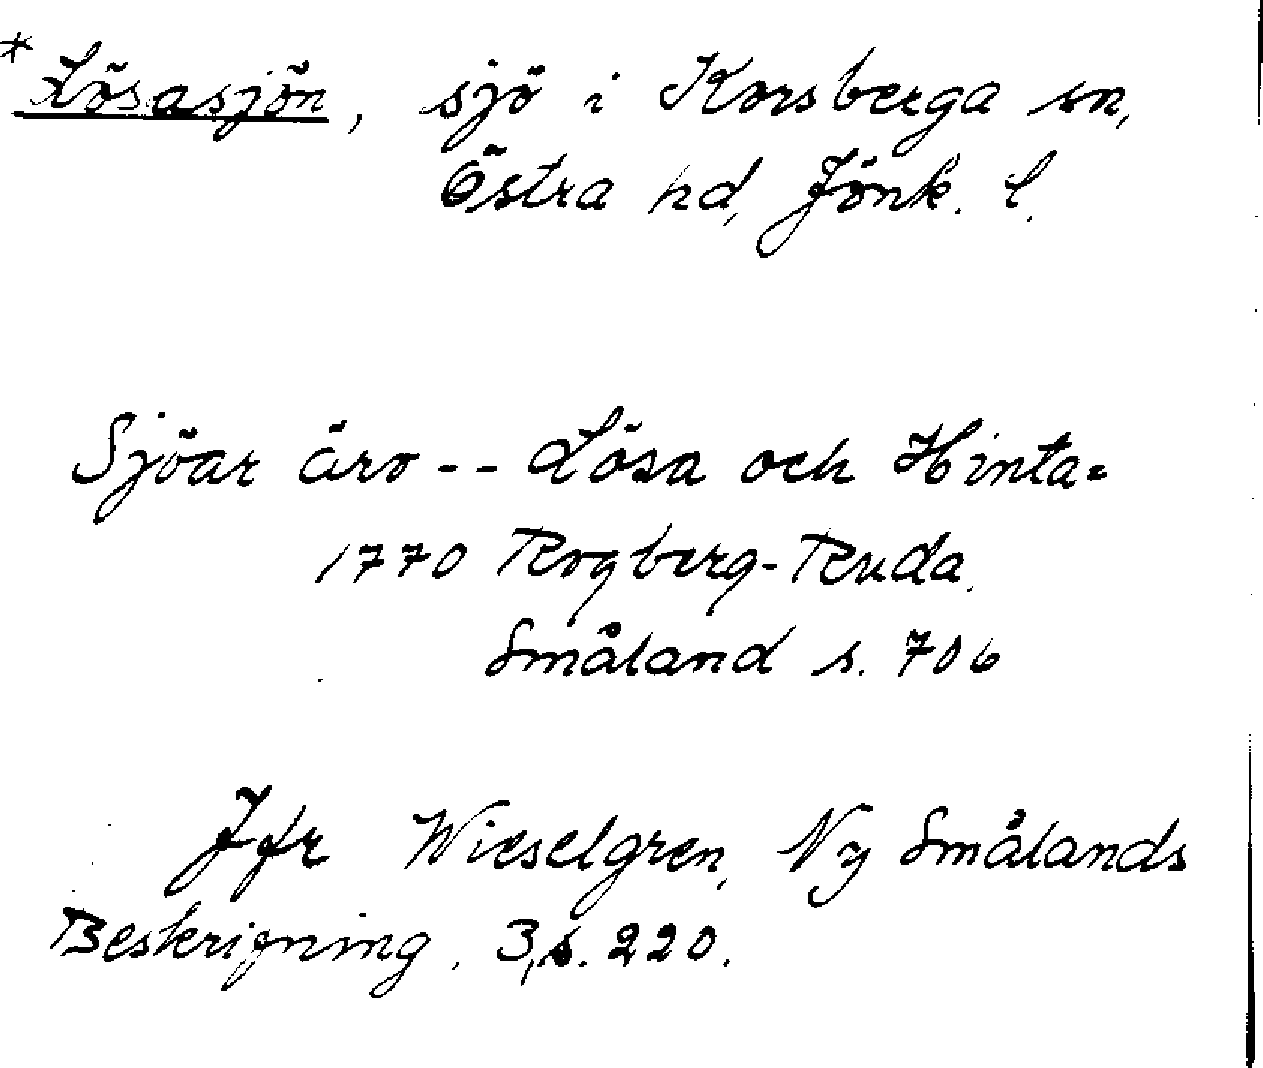 * Lösasjön, sjö i Korsberga sn,
Östra hd, Jönk. l.
Sjöar äro -- Lösa och Hinta=
1770 Rogberg-Ruda.
Småland s. 706
Jfr Wieselgren, Ny Smålands
Beskrifning. 3, s. 220.